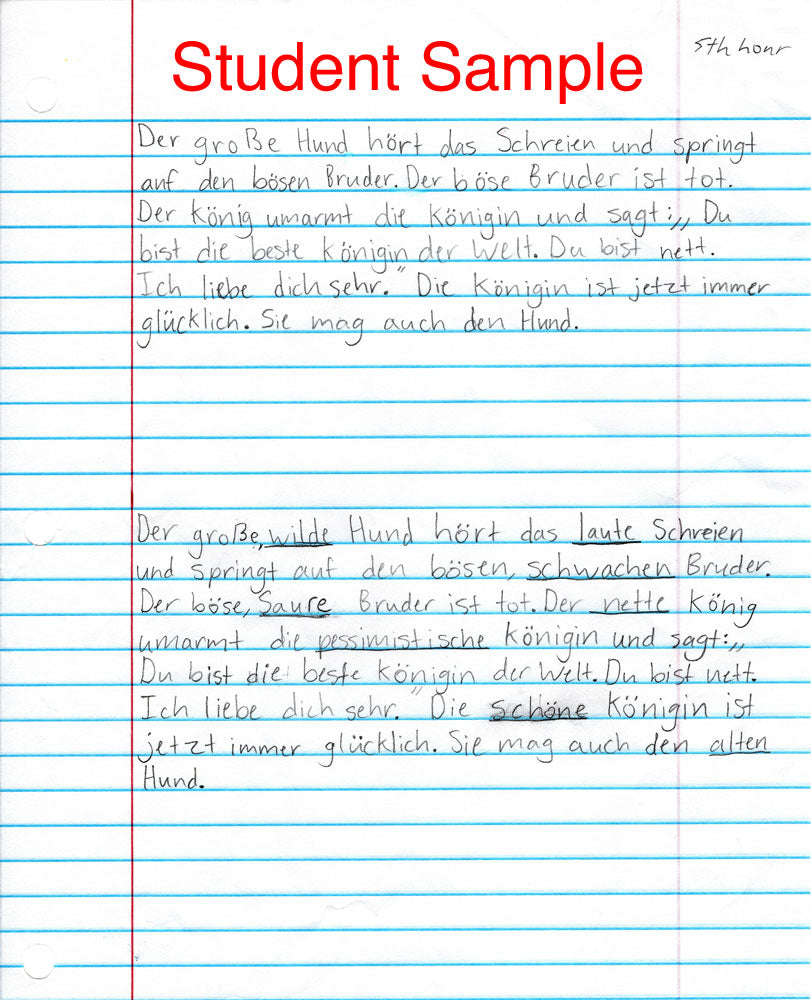 Student Sample
5th hour
Der große Hund hört das Schreien und springt
auf den bösen Bruder. Der böse Bruder ist tot.
Der König umarmt die Königin und sagt:„ Du
bist die beste Königin der Welt. Du bist nett.
Ich liebe dich sehr.“ Die Königin ist jetzt immer
glücklich. Sie mag auch den Hund.
Der große, wilde Hund hört das laute Schreien
und springt auf den bösen, schwachen Bruder.
Der böse, Saure Bruder ist tot. Der nette König
umarmt die pessimistische Königin und sagt:„
Du bist die beste Königin der Welt. Du bist nett.
Ich liebe dich sehr.“ Die schöne Königin ist
jetzt immer glücklich. Sie mag auch den alten
Hund.